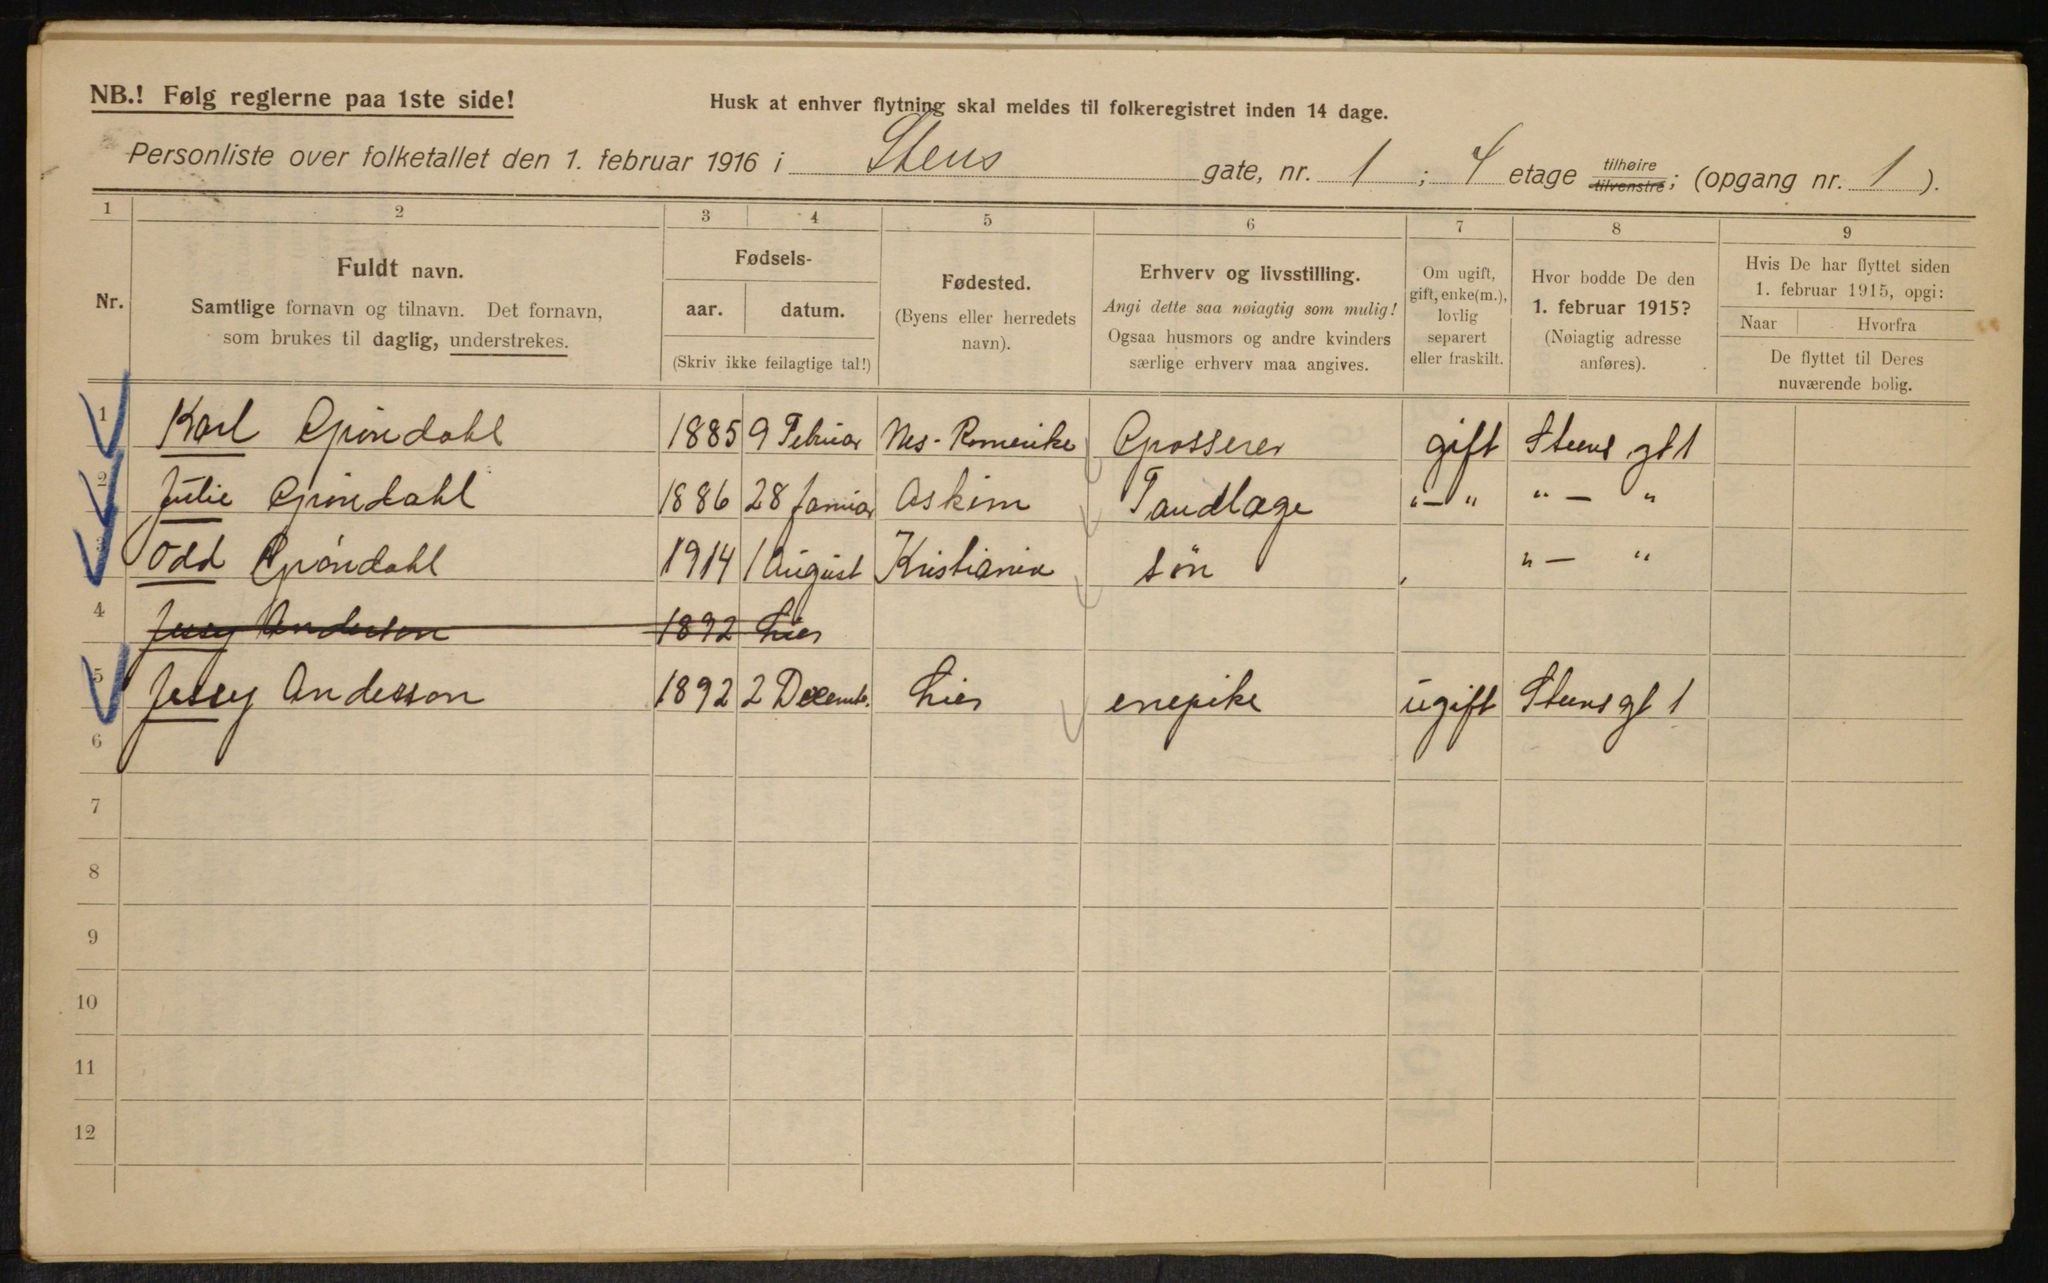 NB.! Følg reglerne paa 1ste side!
Husk at enhver flytning skal meldes til folkeregistret inden 14 dage.
Personliste over folketallet den 1. februar 1916 i Stens gate, nr. 1; 4 etage tilhøire tilvenstre; (opgang nr. 1).
1 2 3 4 5 6 7 8 9
Nr.
Fuldt navn.
Samtlige fornavn og tilnavn. Det fornavn,
som brukes til daglig, understrekes.
Fødsels-
aar. datum.
(Skriv ikke feilagtige tal!)
Fødested.
(Byens eller herredets
navn).
Erhverv og livsstilling.
Angi dette saa nøiagtig som mulig!
Ogsaa husmors og andre kvinders
særlige erhverv maa angives.
Om ugift,
gift, enke(m.),
lovlig
separert
eller fraskilt.
Hvor bodde De den
1. februar 1915?
(Nøiagtig adresse
anføres).
Hvis De har flyttet siden
1. februar 1915, opgi:
Naar Hvorfra
De flyttet til Deres
nuværende bolig.
1 Karl Gröndahl 1885 9 Februar Nes-Romerike Grosserer gift Steens gt 1
2 Julie Gröndahl 1886 28 Januar Askim Tandlæge "—" "—"
3 Odd Gröndahl 1914 1 August Kristiania sön "—"
4 Jessy Anderson 1892 Lier
5 Jessy Andesson 1892 2 Decembr. Lier enepike ugift Steens gt 1
6
7
8
9
10
11
12